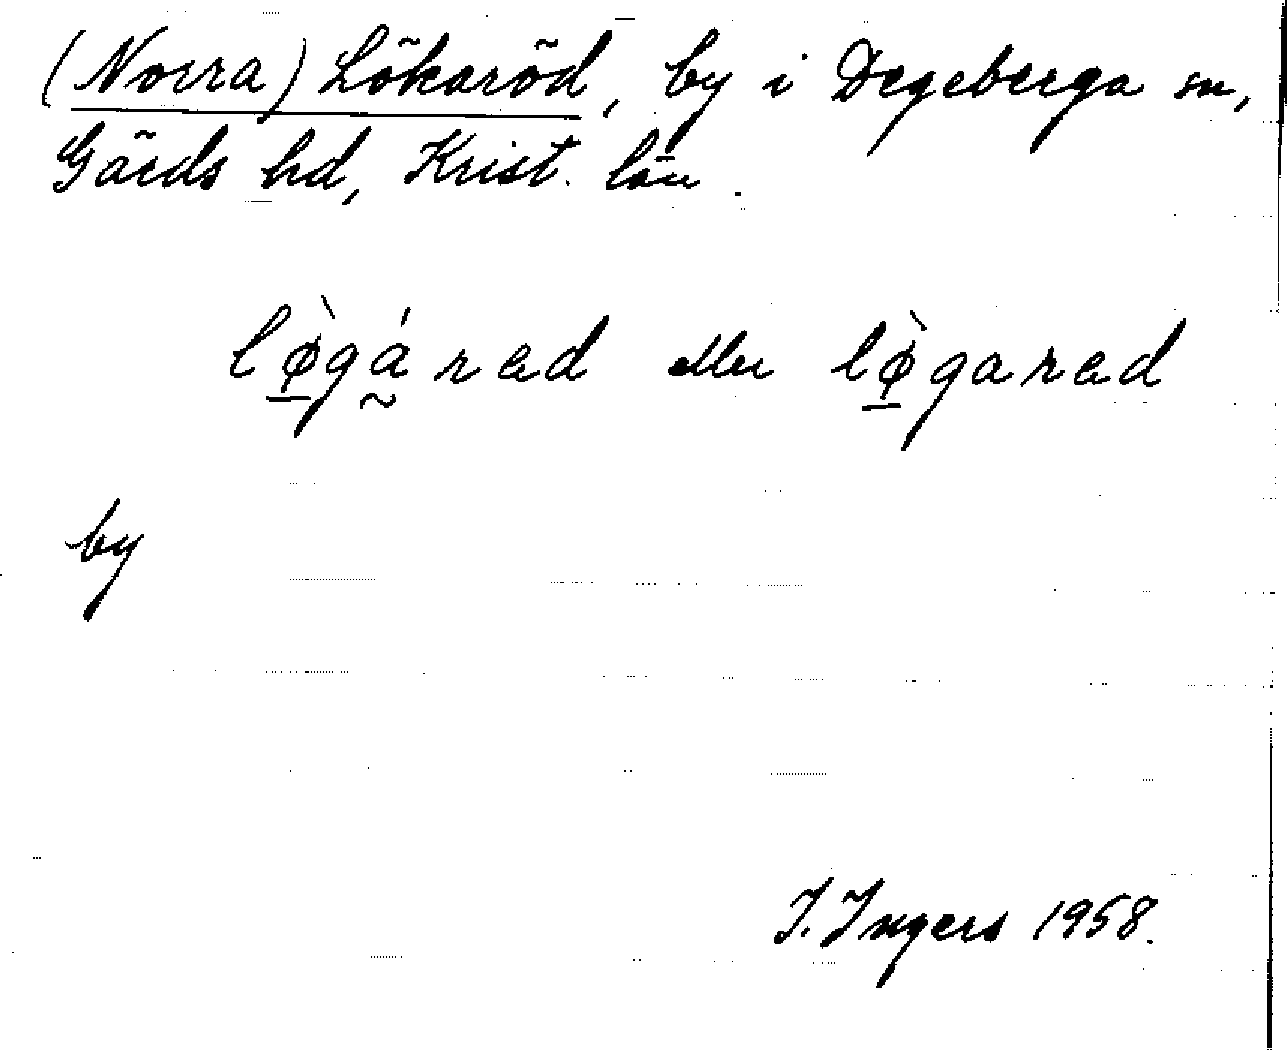 (Norra) Lökaröd, by i Degeberga sn,
Gärds hd, Krist. län.
lø̲̀gá̰rad eller lø̲̀garad
by
I. Ingers 1958.